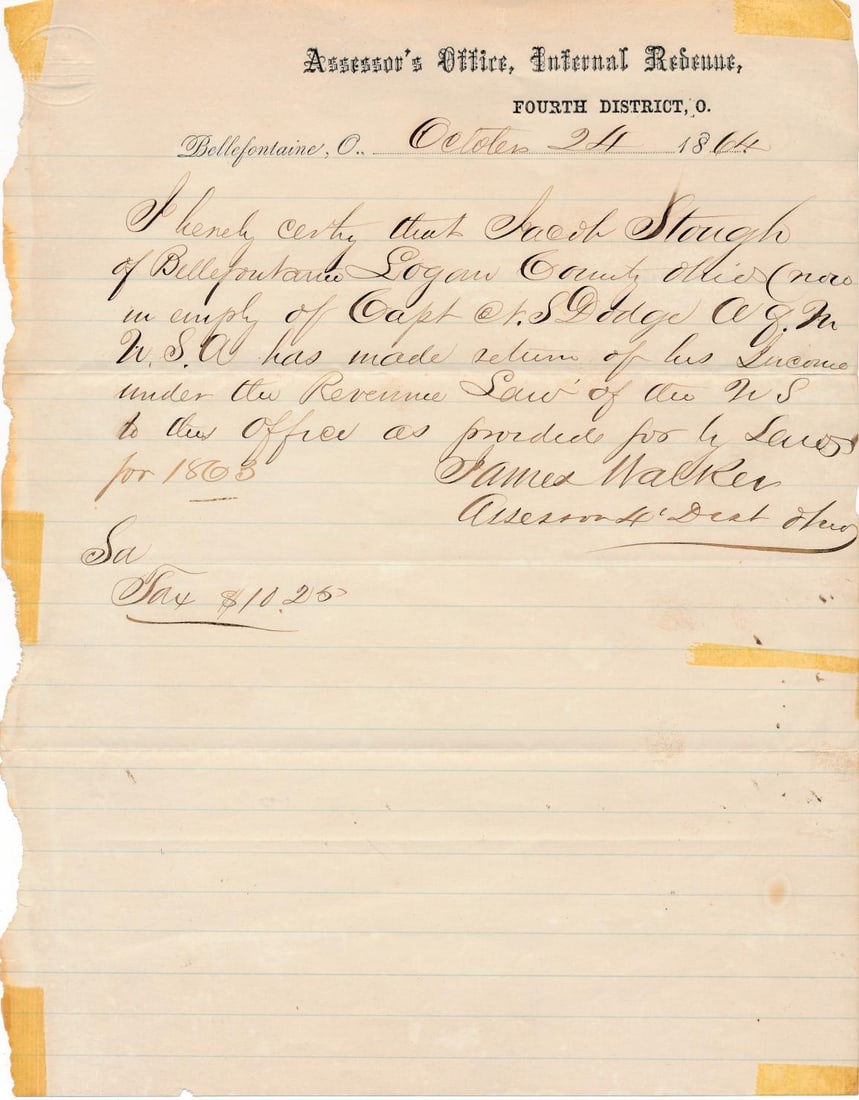 Assessor's Office, Internal Revenue,
FOURTH DISTRICT, O.
Bellefontaine, O., October 24 1864
I hereby certify that Jacob Stough
of Bellefontaine Logan County Ohio (now
in employ of Capt N. S Dodge A Q. M
U. S. A has made return of his Income
under the Revenue Law of the U S
to this Office as provided for by Law
for 1863
James Walker
Assessor 4' Dist Ohio
Tax $10.25